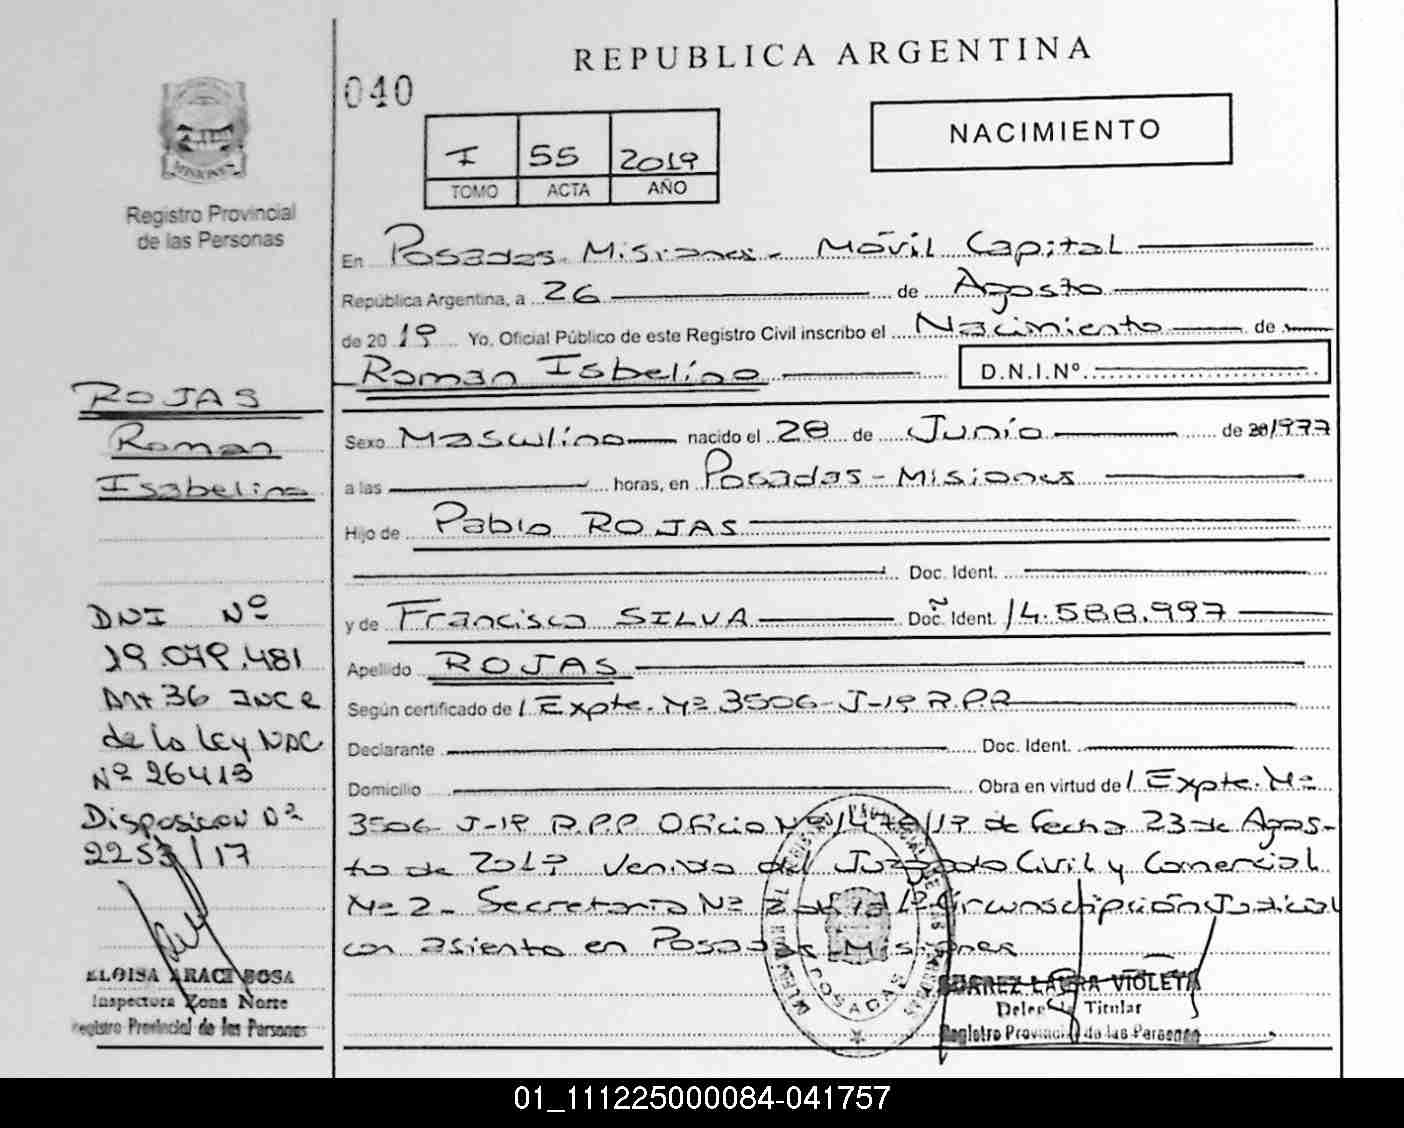 REPUBLICA ARGENTINA
040
NACIMIENTO
I 55 2019
TOMO ACTA AÑO
MISIONES
Registro Provincial
de las Personas
En Posadas Misiones - Móvil Capital
República Argentina, a 26 de Agosto
de 2019 Yo, Oficial Público de este Registro Civil inscribo el Nacimiento de
Roman Isbelino D.N.I.Nº
ROJAS
Roman
Isabelino
Sexo Masculino nacido el 28 de Junio de 20/1977
a las horas, en Posadas - Misiones
Hijo de Pablo ROJAS
Doc. Ident.
y de Francisca SILVA Doc. Ident. 14.588.997
Apellido ROJAS
Según certificado de / Expte. Nº 3506-J-19 R.P.P.
Declarante Doc. Ident.
Domicilio Obra en virtud de / Expte. Nº
3506 J-19 R.P.P. Oficio Nº 1470/19 de fecha 23 de Agos-
to de 2019 venido del Juzgado Civil y Comercial
Nº 2 - Secretaria Nº 2 de la 1º Circunscripción Judicial
con asiento en Posadas Misiones
DNI Nº
19.079.481
Art 36 INC C
de la Ley NAC.
Nº 26413
Disposicion Nº
2253/17
ELOISA ARACI SOSA
Inspectora Zona Norte
Registro Provincial de las Personas
POSADAS
SUAREZ LAURA VIOLETA
Delegada Titular
Registro Provincial de las Personas
01_111225000084-041757